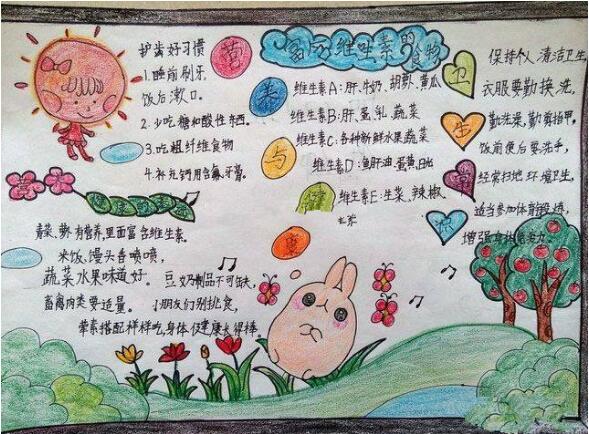 护齿好习惯
1.睡前刷牙
饭后漱口。
2.少吃糖和酸性东西。
3.吃粗纤维食物
4.补充钙用含氟牙膏。
营
养
与
健
康
富含维生素的食物
维生素A:肝、牛奶、胡萝、黄瓜
维生素B:肝、蛋、乳、蔬菜
维生素C:各种新鲜水果蔬菜
维生素D:鱼肝油、蛋黄、
维生素E:生菜、辣椒、
卫
生
常
识
保持个人清洁卫生,
衣服要勤换洗,
勤洗澡,勤剪指甲,
饭前便后要洗手,
经常扫地 环境卫生,
适当参加体育锻炼,
增强
营养
健康
青菜、有营养,里面富含维生素。
米饭、馒头香喷喷,
蔬菜水果味道好。豆奶制品不可缺,
畜禽肉类要适量。小朋友们别挑食,
荤素搭配样样吃,身体健康长得棒。